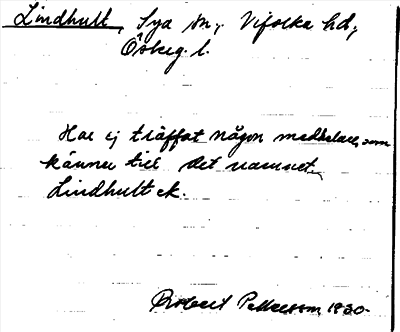 Lindhult, Sya sn, Vifolka hd,
Östeg. l.
Har ej träffat någon meddelare, som
känner till det namnet
Lindhult ek.
Robert Pettersson 1930.